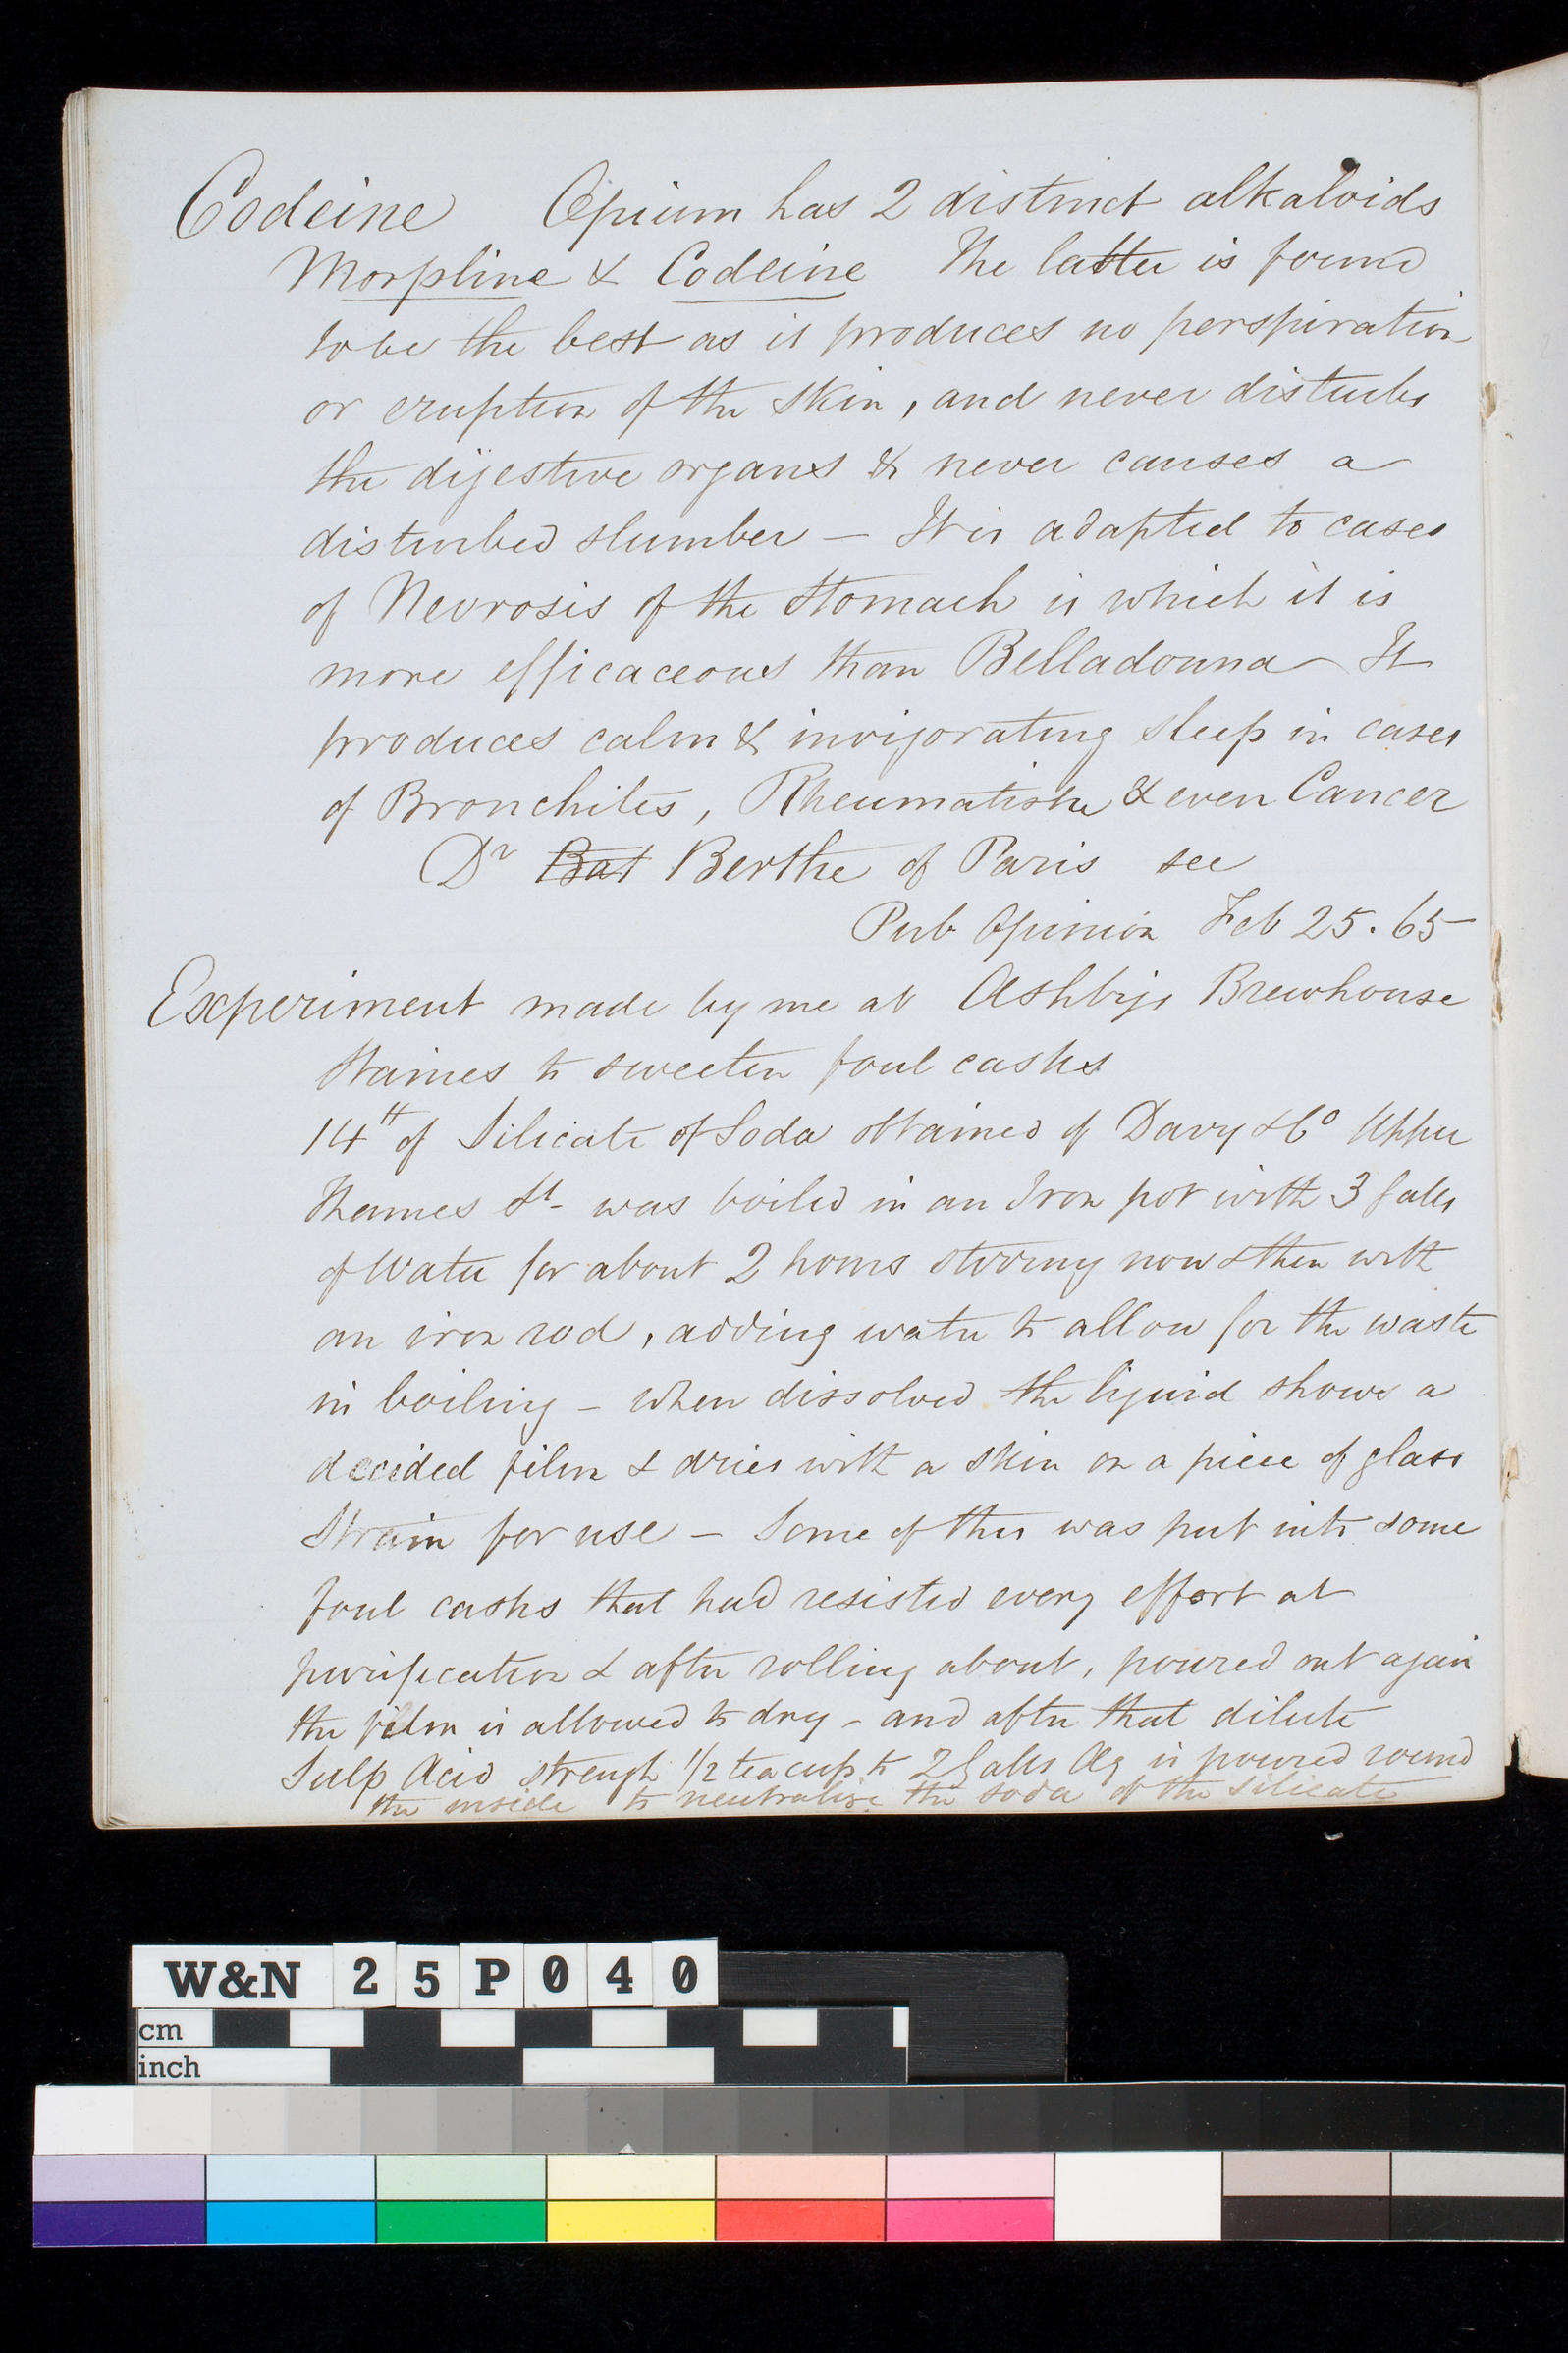 Codeine Opium has 2 distinct alkaloids
Morphine & Codeine The latter is found
to be the best as it produces no perspiration
or eruption of the skin, and never disturbs
the digestive organs & never causes a
disturbed slumber – It is adapted to cases
of Nevrosis of the stomach in which it is
more efficaceous than Belladonna – It
produces calm & invigorating sleep in cases
of Bronchites, Rheumatism & even Cancer
Dr Bat Berthe of Paris see
Pub Opinion Feb 25. 65
Experiment made by me at Ashbys Brewhouse
Staines to sweeten foul casks
14 lb of Silicate of Soda obtained of Davy & Co Upper
Thames St – was boiled in an Iron pot with 3 galls
of Water for about 2 hours stirring now & then with
an iron rod, adding water to allow for the waste
in boiling – when dissolved the liquid shows a
decided film & dries with a skin on a piece of glass
Strain for use – Some of this was put into some
foul casks that had resisted every effort at
purification & after rolling about, poured out again
the film is allowed to dry – and after that dilute
Sulp Acid strength 1/2 tea cup to 2 Galls Aq is poured round
the inside to neutralise the soda of the silicate
W&N 25P040
cm
inch